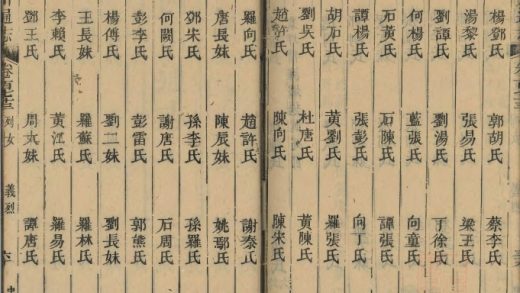 楊鄧氏 郭胡氏 蔡李氏
湯黎氏 張易氏 梁王氏
劉譚氏 劉湯氏 丁徐氏
何楊氏 藍張氏 向童氏
石黃氏 石陳氏 譚張氏
譚楊氏 張彭氏 向丁氏
胡石氏 黃劉氏 羅張氏
劉吳氏 杜唐氏 黃陳氏
趙許氏 陳向氏 陳宋氏
羅向氏 趙許氏 謝秦氏
唐長妹 陳辰妹 姚鄢氏
鄧宋氏 孫李氏 孫羅氏
何闕氏 謝唐氏 石周氏
彭李氏 彭雷氏 郭熊氏
楊傅氏 劉二妹 劉長妹
王長妹 羅蘇氏 羅林氏
李賴氏 黃江氏 羅易氏
鄧王氏 周 妹 譚唐氏
通志 卷 列女 義烈